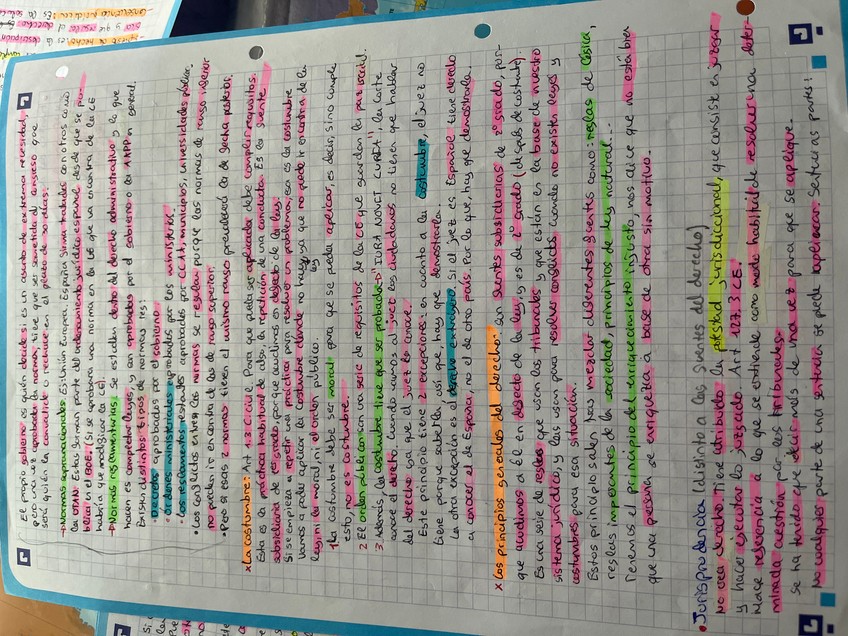 El propio gobierno es quién decide si es un asunto de extrema necesidad,
pero una vez aprobada la norma, tiene que ser sometida al congreso que
será quién la convalide o rechace en el plazo de 30 días.
→Normas supranacionales: Es Unión Europea, España firma tratados con otros como
la OTAN. Estas forman parte del ordenamiento jurídico español, desde que se pu-
blican en el BOE. (Si se aprobara una norma en la UE que va en contra de la CE
habría que modificar la CE)
→Normas reglamentarias: Se estudian dentro del derecho administrativo y lo que
hacen es completar leyes, y son aprobadas por el gobierno o la AAPP en general.
Existen distintos tipos de normas reg:
•Decretos aprobados por el gobierno.
•Órdenes ministeriales aprobadas por los ministerios.
•Los reglamentos restantes aprobados por CCAA, municipios, universidades públicas.
•Los conflictos entre las normas se regulan porque las normas de rango inferior
no pueden ir en contra de las de rango superior.
•Pero si esas 2 normas tienen el mismo rango prevalecerá la de fecha posterior.
x La costumbre: Art 1.3 C.civil. Para que pueda ser aplicada debe cumplir requisitos.
Esta es la práctica habitual de algo, la repetición de una conducta. Es la fuente
subsidiaria de 1er grado porque acudimos en defecto de la ley.
Si se empieza a repetir una práctica para resolver un problema, eso es la costumbre
Vamos a poder aplicar la costumbre donde no haya ley ya que no puede ir en contra de la
ley, ni la moral, ni el orden público.
1 La costumbre debe ser moral para que se pueda aplicar, es decir, si no cumple
esto, no es costumbre.
2 El orden público son una serie de requisitos de la CE que guardan la paz social.
3 Además, la costumbre tiene que ser probada→"IURA NOVIT CURIA", la corte
conoce el derecho. Cuando vamos al juez los ciudadanos no tienen que hablar
del derecho ya que el juez lo conoce.
Este principio tiene 2 excepciones: en cuanto a la costumbre, el juez no
tiene porque saberla, así que hay que demostrarla.
La otra excepción es el derecho extranjero. Si el juez es Español, tiene derecho
a conocer el de España, no el de otro país. Por lo que, hay que demostrarla.
x Los principios generales del derecho: son fuentes subsidiarias de 2º grado, por-
que acudimos a él en defecto de la ley, y es de 2º grado (después de costumb).
Es una serie de reglas que usan los tribunales y que están en la base de nuestro
sistema jurídico, y las usan para resolver conflictos cuando no existen leyes y
costumbres para esa situación.
Estos principios salen tras mezclar diferentes fuentes como: reglas de lógica,
reglas imperantes de la sociedad, principios de ley natural...
Tenemos el principio del enriquecimiento injusto, nos dice que no está bien
que una persona se enriquezca a base de otra sin motivo.
•Jurisprudencia (distinto a las fuentes del derecho)
No crea derecho. Tiene atribuida la potestad jurisdiccional, que consiste en juzgar
y hacer ejecutar lo juzgado. Art 117.3 CE.
Hace referencia a lo que se entiende como modo habitual de resolver una deter-
minada cuestión por los tribunales.
se ha tenido que decir más de una vez para que se aplique.
No cualquier parte de una sentencia se puede aplicar. Sentencias partes: